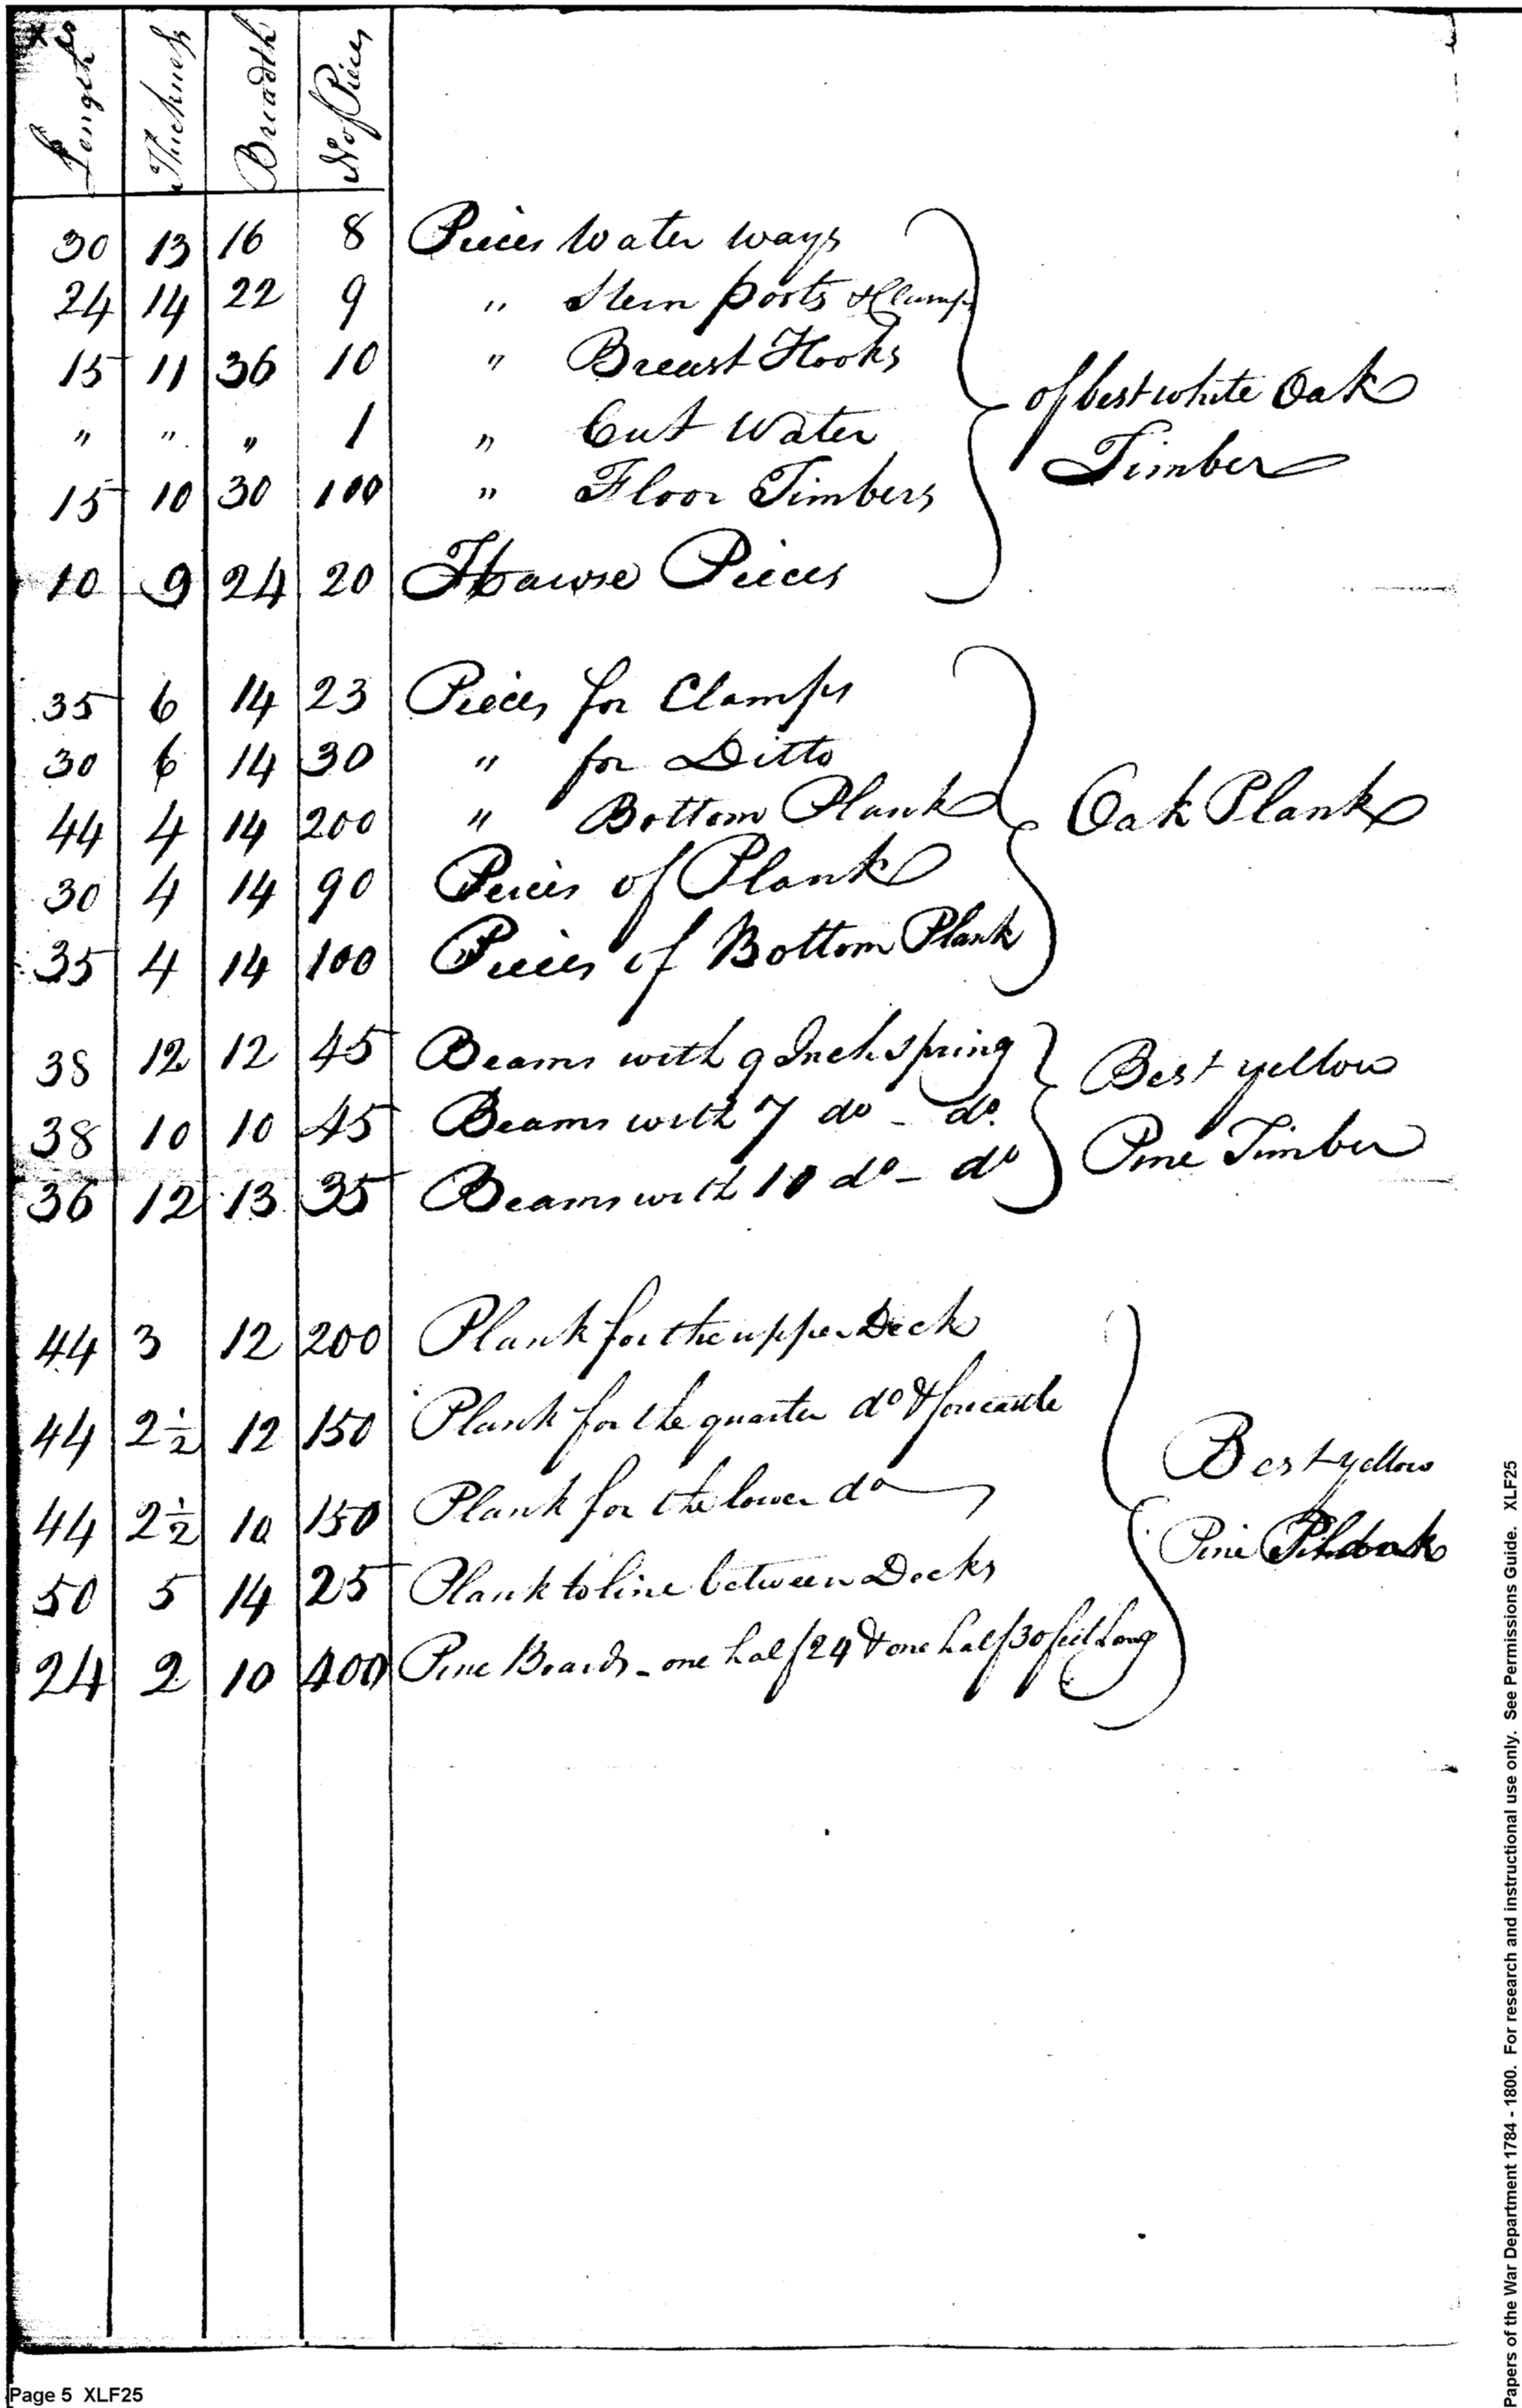 Length Thickness Breadth No of Pieces
30 13 16 8 Pieces Water Ways
24 14 22 9 " Stern posts & Clamps
15 11 36 10 " Breast Hooks
of best white Oak
" " " 1 " Cut Water
Timber
15 10 30 100 " Floor Timbers
10 9 24 20 Hawse Pieces
35 6 14 23 Pieces for Clamps
30 6 14 30 " for Ditto
44 4 14 200 " Bottom Plank
Oak Plank
30 4 14 90 Peices of Plank
35 4 14 100 Pieces of Bottom Plank
38 12 12 45 Beams with 9 Inch spring
Best yellow
38 10 10 45 Beams with 7 do - do
Pine Timber
36 12 13 35 Beams with 10 do - do
44 3 12 200 Plank for the upper Deck
44 2½ 12 150 Plank for the quarter do & forecastle
Best yellow
44 2½ 10 150 Plank for the lower do
Pine
50 5 14 25 Plank to line between Decks
24 2 10 400 Pine Boards - one half 24 & one half 30 feet Long
Page 5 XLF25
Papers of the War Department 1784 - 1800. For research and instructional use only. See Permissions Guide. XLF25